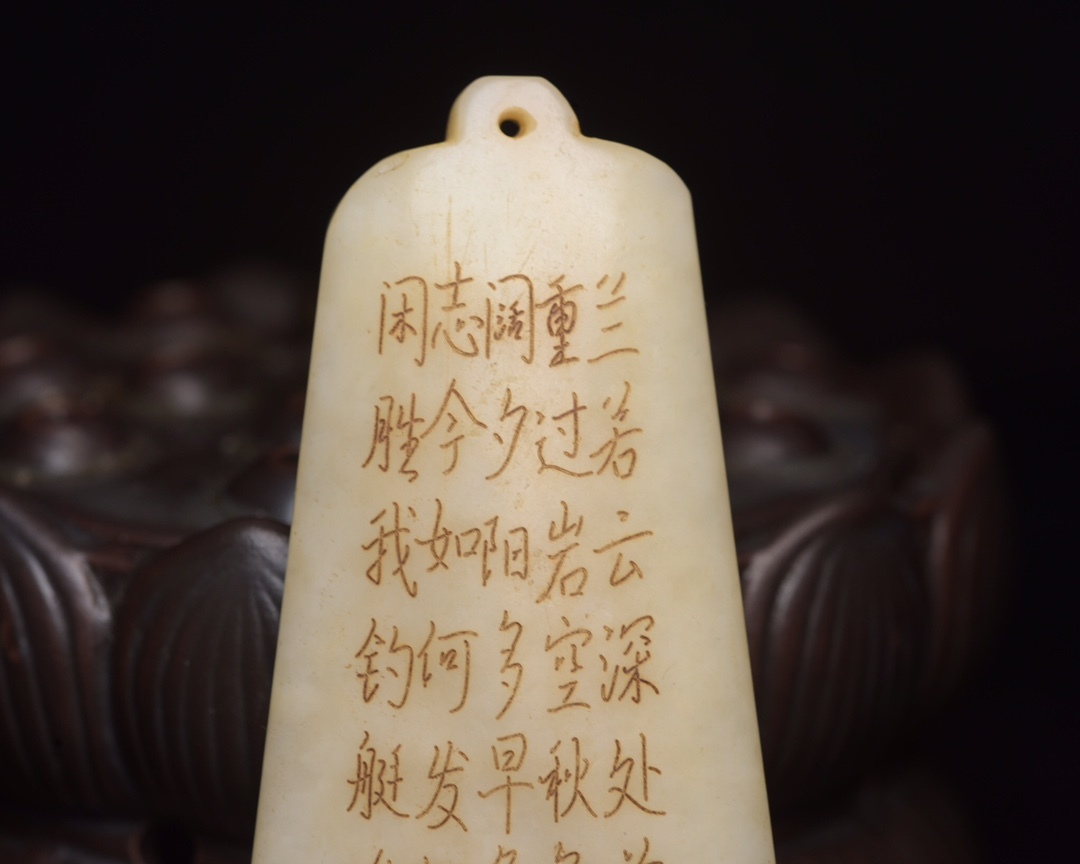 兰若云深处
重过岩空秋
阔夕阳多早
志今如何发
闲胜我钓艇